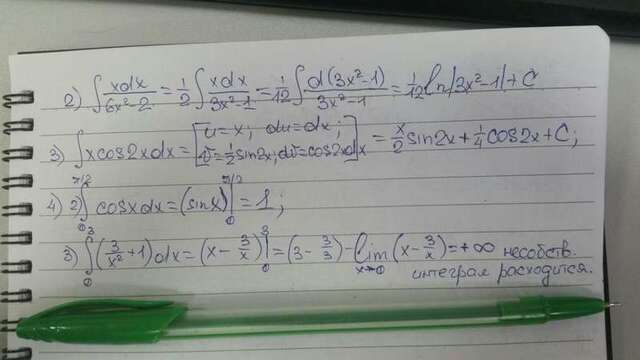 2) ∫ xdx/(6x²-2) = 1/2 ∫ xdx/(3x²-1) = 1/12 ∫ d(3x²-1)/(3x²-1) = 1/12 ln|3x²-1| + C
3) ∫ xcos2xdx = [u=x; du=dx; v=1/2 sin2x; dv=cos2xdx] = x/2 sin2x + 1/4 cos2x + C;
4) 2) ∫₀^(π/2) cosxdx = (sinx)|₀^(π/2) = 1;
3) ∫₀³ (3/x² + 1) dx = (x - 3/x)|₀³ = (3 - 3/3) - lim x→0 (x - 3/x) = +∞ несобств.
интеграл расходится.